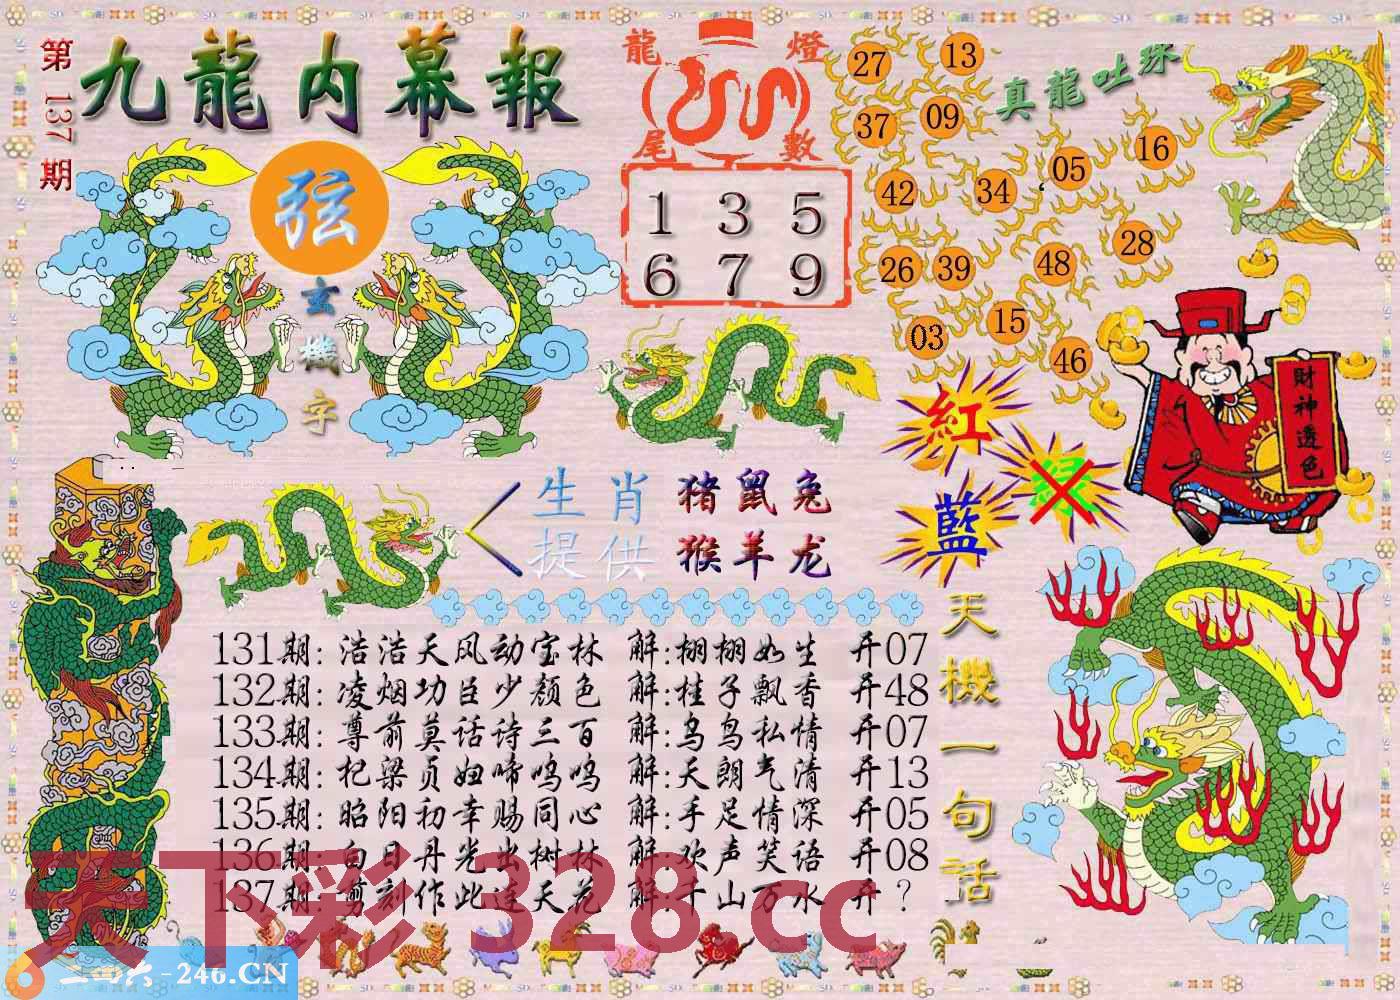 第137期
九龍内幕報
弦
玄機字
龍燈尾數
1 3 5
6 7 9
真龍吐珠
27 13
37 09
42 34 05 16
26 39 48 28
03 15 46
財神透色
紅
绿
藍
生肖 猪鼠兔
提供 猴羊龙
131期:浩浩天风动宝林 解:栩栩如生 开07
132期:凌烟功臣少颜色 解:桂子飘香 开48
133期:尊前莫话诗三百 解:乌鸟私情 开07
134期:杞梁贞妇啼呜呜 解:天朗气清 开13
135期:昭阳初幸赐同心 解:手足情深 开05
136期:白日丹光出树林 解:欢声笑语 开08
137期:剪刻作此连天花 解:千山万水 开?
天機一句話
天下彩 328.cc
二四六-246.CN